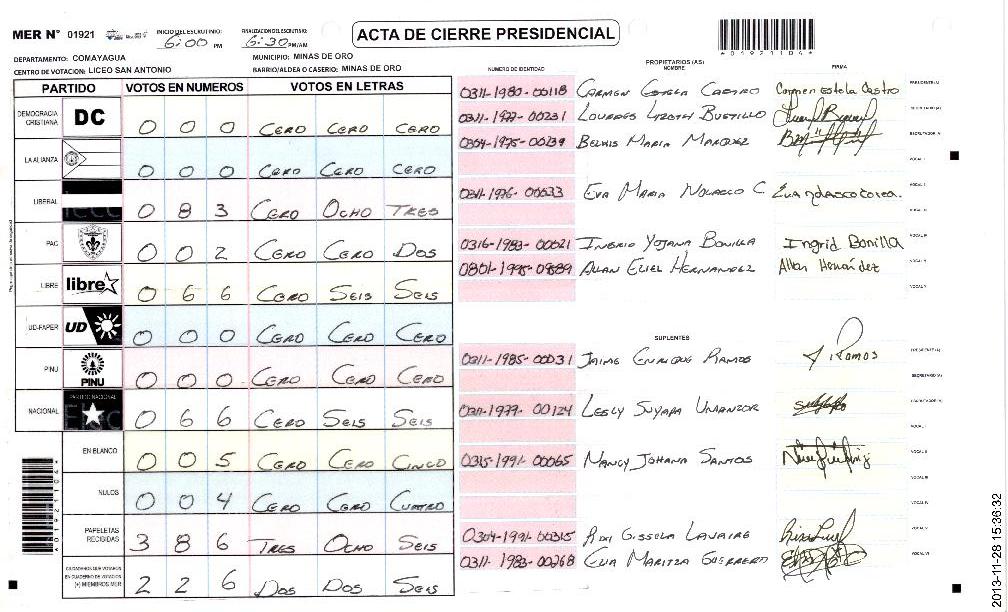 MER N° 01921
INICIO DEL ESCRUTINIO: 6:00 PM
FINALIZACION DEL ESCRUTINIO: 6:30 PM/AM
ACTA DE CIERRE PRESIDENCIAL
*01921104*
DEPARTAMENTO: COMAYAGUA
MUNICIPIO: MINAS DE ORO
CENTRO DE VOTACION: LICEO SAN ANTONIO
BARRIO/ALDEA O CASERIO: MINAS DE ORO
PARTIDO VOTOS EN NUMEROS VOTOS EN LETRAS
DEMOCRACIA CRISTIANA DC 0 0 0 CERO CERO CERO
LA ALIANZA 0 0 0 CERO CERO CERO
LIBERAL 0 8 3 CERO OCHO TRES
PAC 0 0 2 CERO CERO DOS
LIBRE libre 0 6 6 CERO SEIS SEIS
UD-FAPER UD 0 0 0 CERO CERO CERO
PINU PINU 0 0 0 CERO CERO CERO
NACIONAL PARTIDO NACIONAL 0 6 6 CERO SEIS SEIS
EN BLANCO 0 0 5 CERO CERO CINCO
NULOS 0 0 4 CERO CERO CUATRO
PAPELETAS RECIBIDAS 3 8 6 TRES OCHO SEIS
CIUDADANOS QUE VOTARON EN CUADERNO DE VOTACION (+) MIEMBROS MER 2 2 6 DOS DOS SEIS
PROPIETARIOS (AS)
NUMERO DE IDENTIDAD NOMBRE FIRMA
0311-1980-00118 CARMEN ESTELA CASTRO Carmen Estela Castro PRESIDENTE (A)
0311-1977-00231 LOURDES LIZETH BUSTILLO SECRETARIO (A)
0304-1975-00239 BELKIS MARIA MARQUEZ ESCRUTADOR (A)
VOCAL I
0311-1976-00033 EVA MARIA NOLASCO C. Eva Nolasco Corea. VOCAL II
VOCAL III
0316-1983-00021 INGRID YOJANA BONILLA Ingrid Bonilla VOCAL IV
0801-1995-08889 ALLAN ELIEL HERNANDEZ Allan Hernández VOCAL V
VOCAL VI
SUPLENTES
0311-1985-00031 JAIME ENRIQUE RAMOS J. Ramos PRESIDENTE (A)
SECRETARIO (A)
0311-1977-00124 LESLY SUYAPA UMANZOR ESCRUTADOR (A)
VOCAL I
0315-1991-00065 NANCY JOHANA SANTOS VOCAL II
VOCAL III
VOCAL IV
0304-1991-00315 GISSELA VOCAL V
0311-1983-00268 MARITZA GUERRERO VOCAL VI
2013-11-28 15:36:32